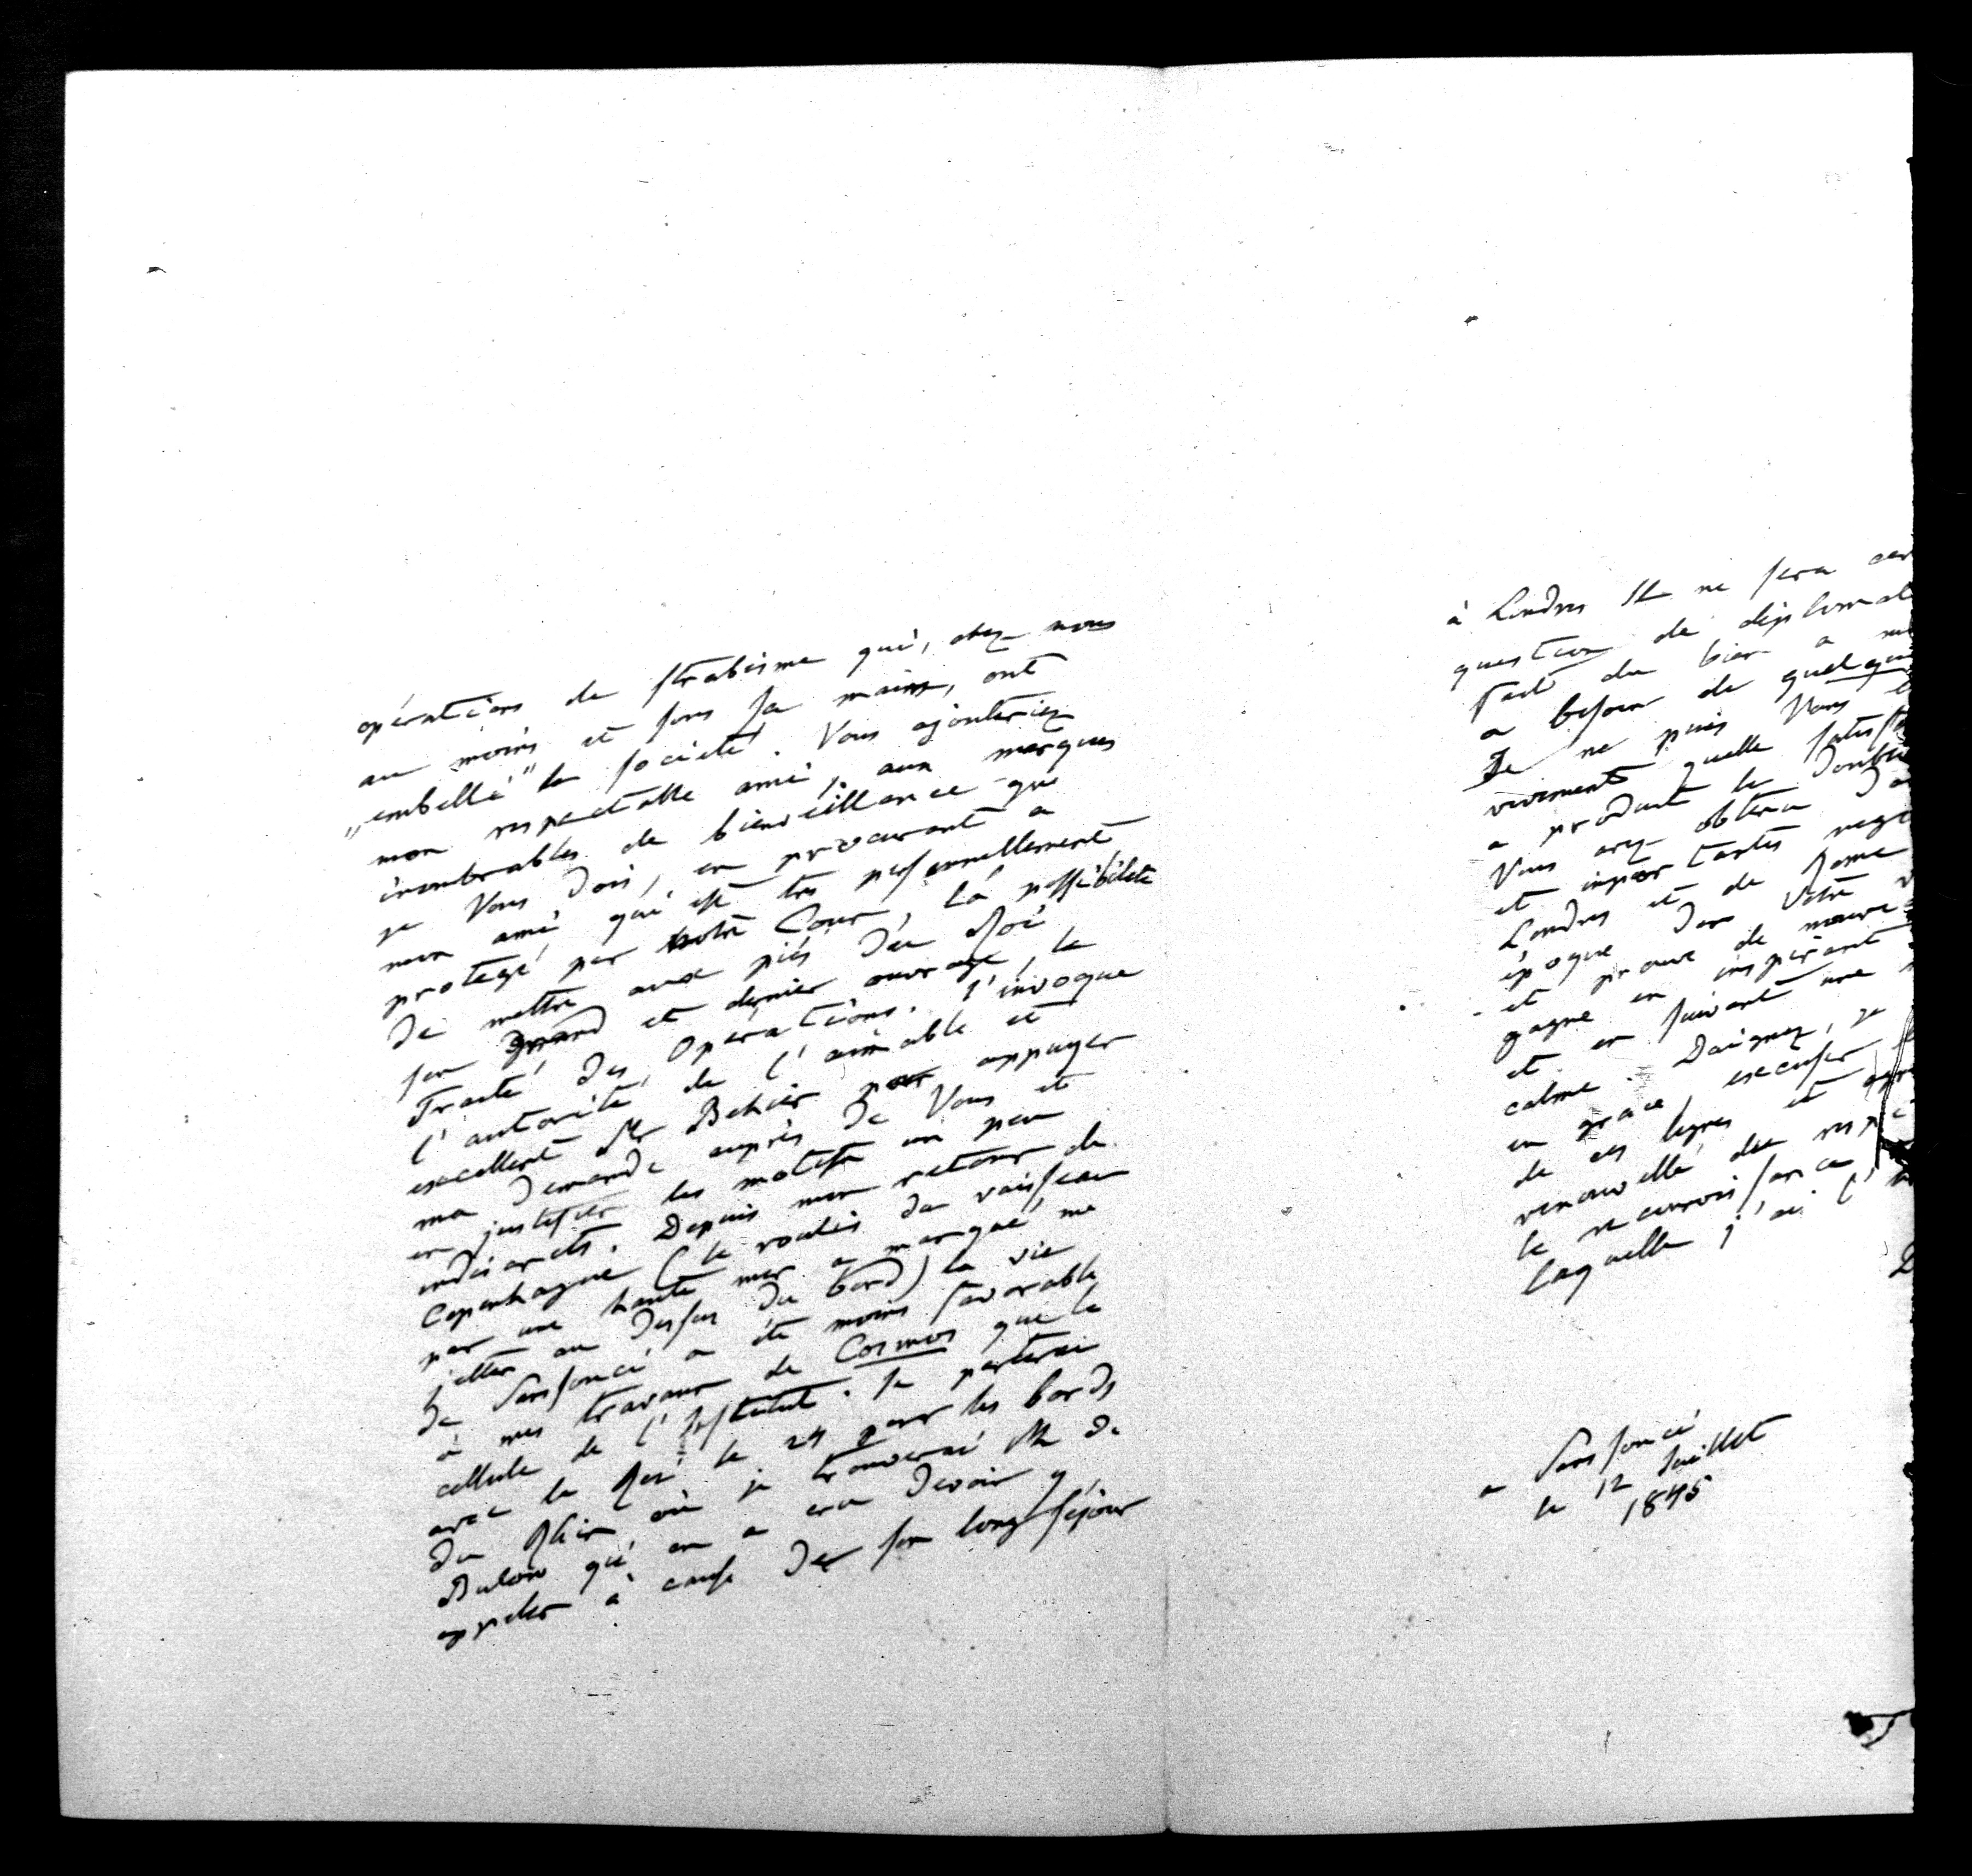 opérations de strabisme qui, chez nous
au moins et sous sa main, ont
„embelli" la société. Vous ajouteriez
mon respectable ami, aux marques
inombrables de bienveillance que
je Vous dois, en procurant a
mon ami qui est très personnellement
protegé par Notre Cour, la possibilité
de mettre aux piés du Roi
son grand et dernier ouvrage, le
Traité des Opérations. J'invoque
l'autorité de l'aimable et
excellent Mr appuyer
ma demande auprès de Vous et
en justifier les motifs un peu
indiscrets. Depuis mon retour de
Copenhague (le roulis du vaisseau
par une haute mer a manqué me
jetter au dessus du bord) la vie
de Sansouci a été moins favorable
à mes travaux de Cosmos que la
cellule de l'Institut. Je partirai
avec le Roi le 24 pour les bords
du Rhin où je trouverai Mr de
Bulow qu'on a cru devoir y
appeler à cause de son long séjour
à Londres Il ne sera
question de
fait du bien a
a besoin de
Je ne puis Vous
vivement quelle
a produit le
Vous avez obtenu
et importantes
Londres et de Rome
époque Votre
et prouve de nouveau
gagne en inspirant
et en suivant une
calme. Daignez, je
en grace, excuser
de ces lignes et
renouvellé du
la reconnaissance
laquelle j'ai l'
a Sansouci
le 12 Juillet
1845